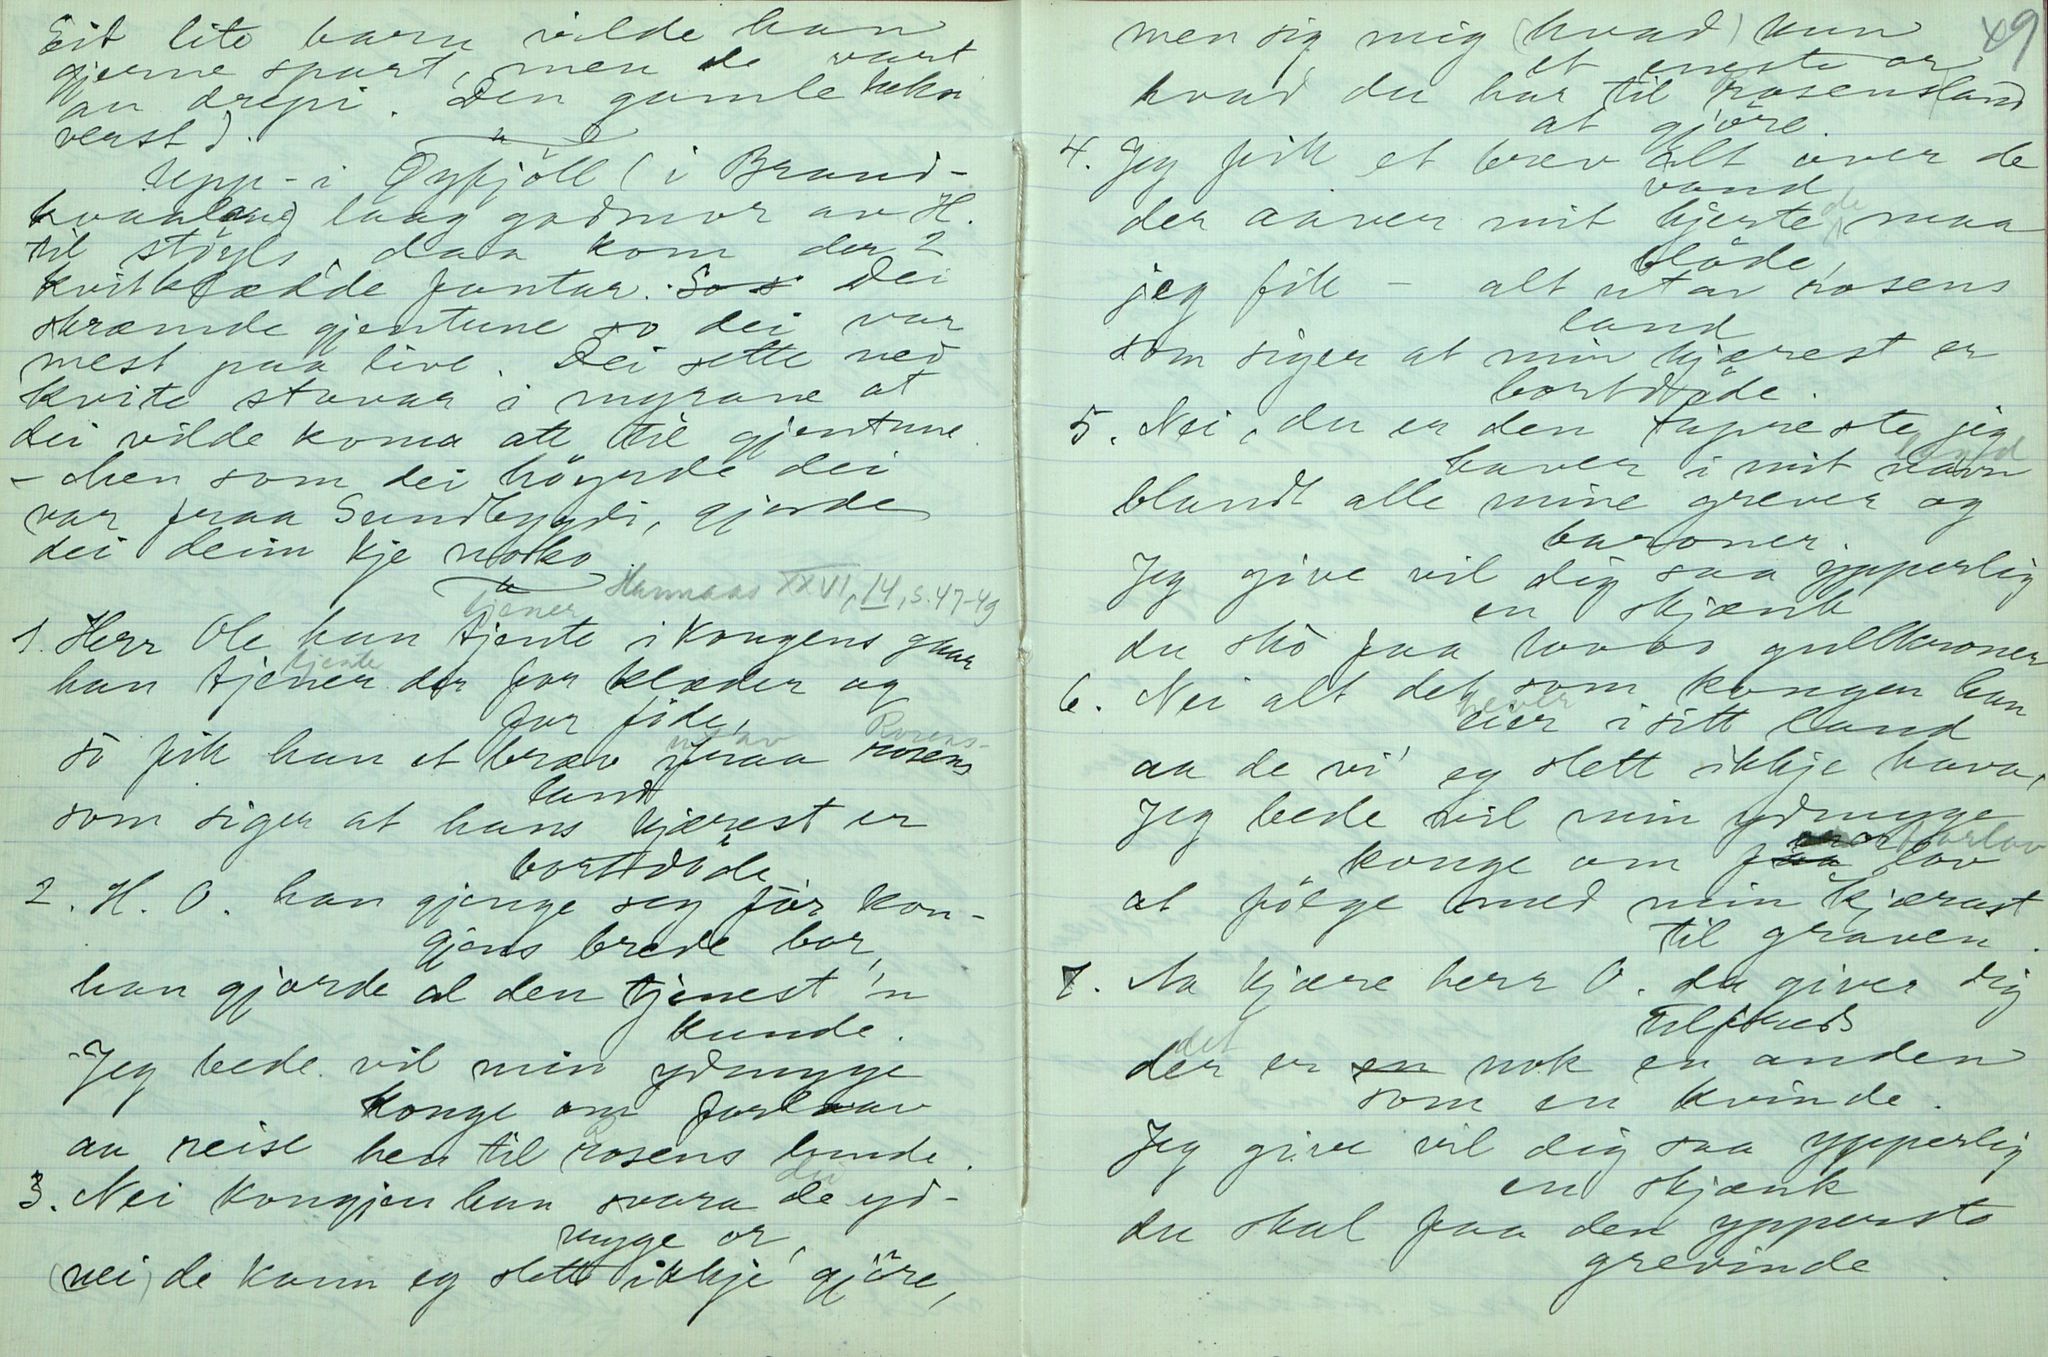 Eit lite barn vilde han
gjerne spart, men de vart
au drepi. Den gamle heksi
verst).
Upp i Øyfjöll (i Brand-
kvaaland) laag godmor av H.
til støyls, daa kom der 2
kvitklædde fantar. So s Dei
skræmde gjentune so dei var
mest paa live. Dei sette ned
kvite stavar i myrane at
dei vilde koma att til gjentune.
– Men som dei höyrde dei
var fraa Sundbygdi, gjorde
dei deim kje noko.
Hannaas XXVI, 14, s. 47-49
tjener
1. Herr Ole han tjente i kongens gaar
tjente
han tjener der for klæder og
for föde,
ut av Rosens-
so fik han et brev fraa rosens
land
som siger at hans kjærest er
bortdöde
2. H. O. han gjenge seg för kon-
gjens brede bor,
han gjorde al den tjenest 'n
kunde.
Jeg bede vil min ydmyge
konge om forlaav
au reise hen til rosens lunde.
dei
3. Nei kongjen han svara de yd-
myge or,
(nei) de kann eg slett ikkje gjöre,
49
men sig mig (hvad) kun
et eneste or
hvad du har til rosensland
at gjöre.
4. Jeg fik et brev alt over de
vand
de
der aaver mit hjerte maa
blöde,
jeg fik – alt utav rosens
land
som siger at min kjærest er
bortdöde.
5. Nei, du er den tapreste jeg
haver i mit navn
blandt alle mine grever og
baroner.
Jeg give vil dig saa ypperlig
en skjænk
du sko faa gullkroner
6. Nei alt det som kongen han
hever
eier i sitt land
aa de vi' eg slett ikkje hava,
Jeg bede vil min ydmyge
forlov
konge om faa lov
at fölge med min kjærast
til graven.
7. Aa kjære herr O. du giver dig
tilfreds
det
der er en nok en anden
som en kvinde.
Jeg give vil dig saa ypperlig
en skjænk
du skal faa den ypperste
grevinde.